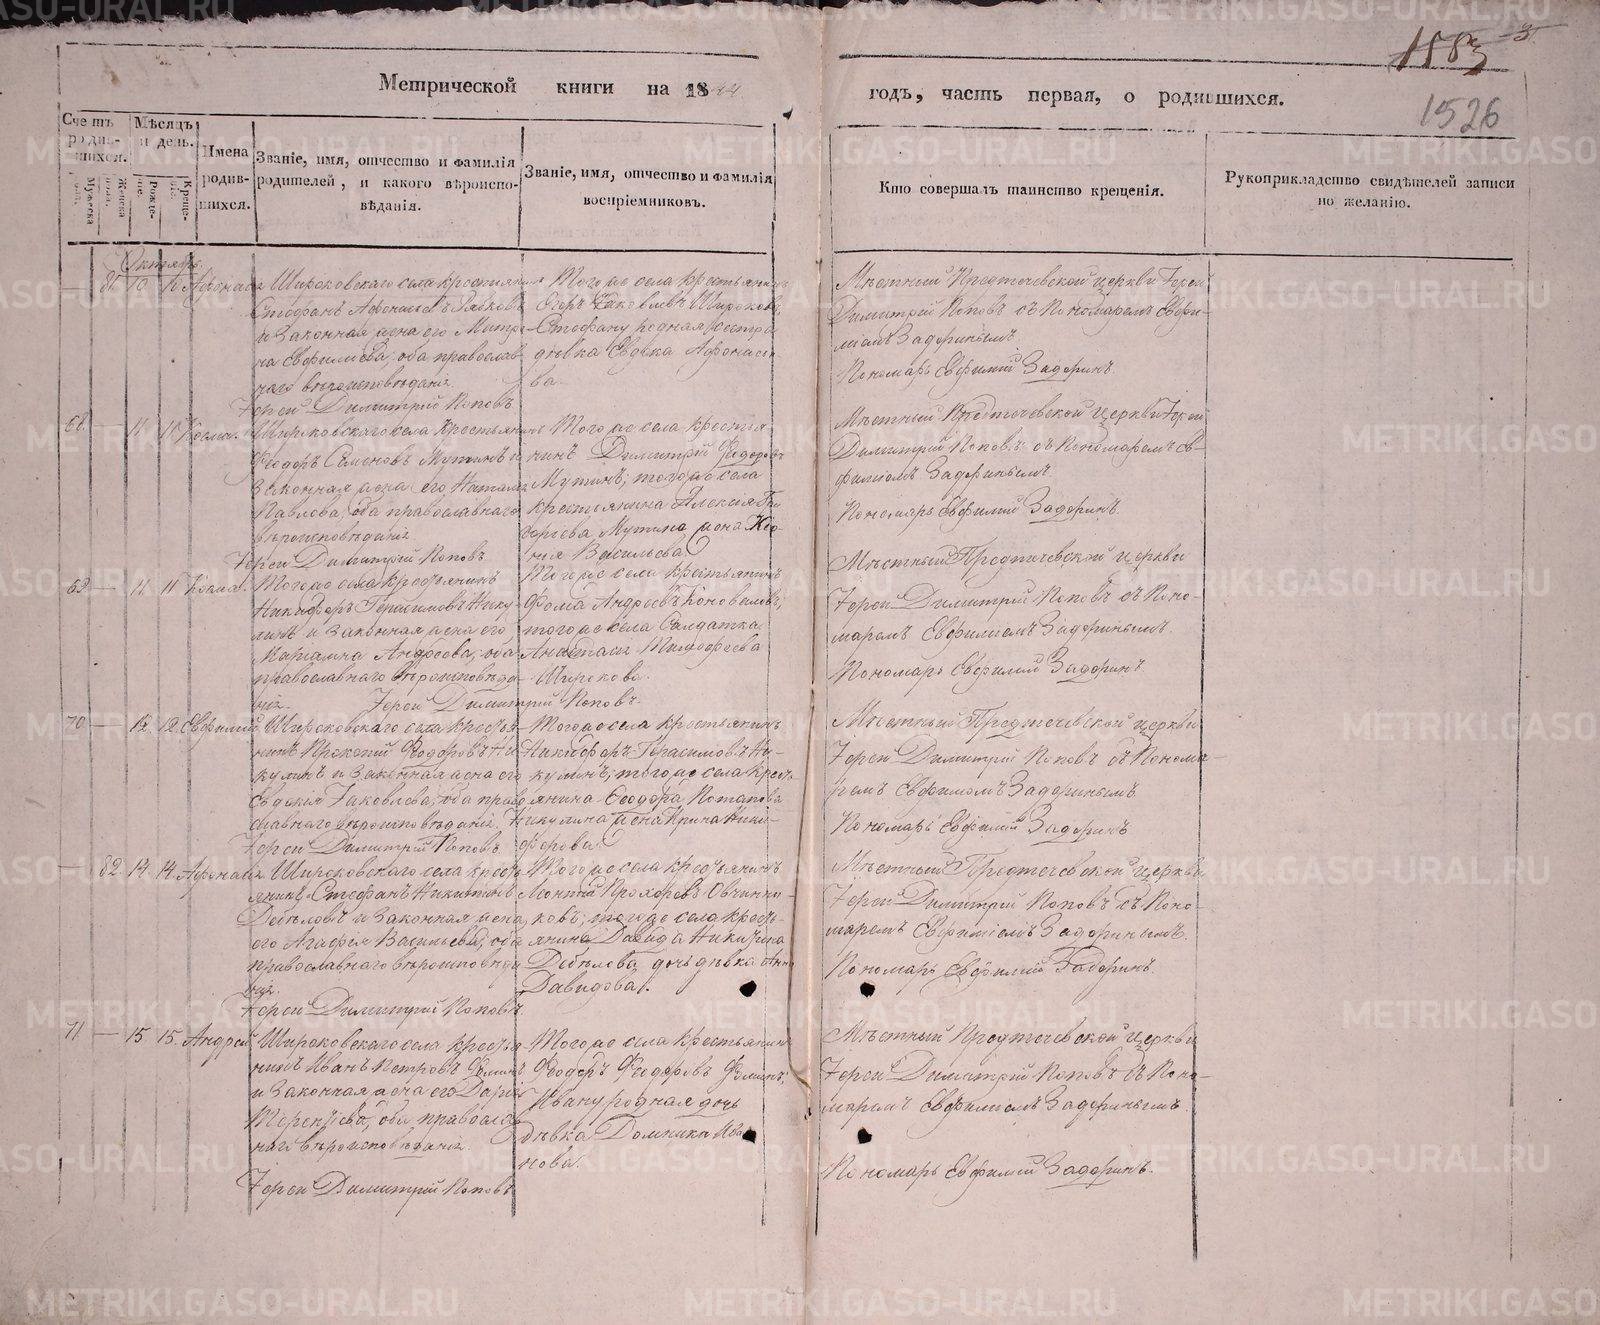 1883
1526
Метрической книги на 1844
годъ, часть первая, о родившихся.
Счетъ родившихся.
Мужеска пола.
Женска пола.
Мѣсяцъ и день.
Рожденіе.
Крещеніе.
Имена родившихся.
Званіе, имя, отчество и фамилія родителей, и какого вѣроисповѣданія.
Званіе, имя, отчество и фамилія воспріемниковъ.
Кто совершалъ таинство крещенія.
Рукоприкладство свидѣтелей записи по желанію.
Октябрь
81 10 10
Широковскаго села крестьянинъ
Стефанъ Афонасьевъ
и законная жена его Матре-
на Евфиміева, оба православ-
наго вѣроисповѣданія.
Іерей Димитрій Поповъ
Того же села крестьянинъ
Егоръ Яковлевъ Широковъ,
Стефану родная сестра
дѣвка Афонасье-
ва.
Мѣстный Предтечевской церкви Іерей
Димитрій Поповъ съ Пономаремъ Евфи-
міемъ Задоринымъ.
Пономарь Евфимій Задоринъ.
68 11 11 Косма.
Широковскаго села крестьянинъ
Феодоръ Семеновъ Мутинъ и
законная жена его Наталья
Павлова, оба православнаго
вѣроисповѣданія
Іерей Димитрій Поповъ
Того же села крестья-
нинъ Димитрій Феодоровъ
Мутинъ; того же села
крестьянина Алексія
Мутина жена Ксе-
нія Васильева
Мѣстный Предтечевской церкви Іерей
Димитрій Поповъ съ Пономаремъ Ев-
фиміемъ Задоринымъ
Пономарь Евфимій Задоринъ.
69 11 11 Козма.
Того же села крестьянинъ
Никифоръ Герасимовъ Нику-
линъ и законная жена его
Маріамна Андреева, оба
православнаго вѣроисповѣда-
нія. Іерей Димитрій Поповъ.
Того же села крестьянинъ
Фома Андреевъ Коноваловъ,
того же села Салдатка
Анастасія Тимофеева
Широкова.
Мѣстный Предтечевской церкви
Іерей Димитрій Поповъ съ Поно-
маремъ Евфиміемъ Задоринымъ.
Пономарь Евфимій Задоринъ.
70 12 12 Евфимій
Широковскаго села крестья-
нинъ Прокопій Феодоровъ Ни-
кулинъ и законная жена его
Евдокія Яковлева, оба право-
славнаго вѣроисповѣданія.
Іерей Димитрій Поповъ
Того же села крестьянинъ
Никифоръ Герасимовъ Ни-
кулинъ; того же села кресть-
янина Феодора Потапова
Никулина жена Ирина Ники-
форова
Мѣстный Предтечевской церкви
Іерей Димитрій Поповъ съ Понома-
ремъ Евфимомъ Задоринымъ
Пономарь Евфимій Задоринъ
82 14 14
Широковскаго села кресть-
янинъ Стефанъ Никитинъ
Дебѣловъ и законная жена
его Агафія Васильева, оба
православнаго вѣроисповѣда-
нія.
Іерей Димитрій Поповъ
Того же села крестьянинъ
Леонтій Прохоровъ Овчинни-
ковъ; того же села кресть-
янина Давида Никитина
Дебѣлова дочь дѣвка Анна
Давидова.
Мѣстный Предтечевской церкви
Іерей Димитрій Поповъ съ Поно-
маремъ Евфиміемъ Задоринымъ.
Пономарь Евфимій Задоринъ.
71 15 15 Андрей
Широковскаго села крестья-
нинъ Иванъ Петровъ Фоминъ
и законная жена его Дарія
Терентіева, оба православ-
наго вѣроисповѣданія.
Іерей Димитрій Поповъ
Того же села крестьянинъ
Феодоръ Феодоровъ Фоминъ,
Ивану родная дочь
дѣвка Домника Ива-
нова.
Мѣстный Предтечевской церкви
Іерей Димитрій Поповъ съ Поно-
маремъ Евфиміемъ Задоринымъ.
Пономарь Евфимій Задоринъ.
METRIKI.GASO-URAL.RU